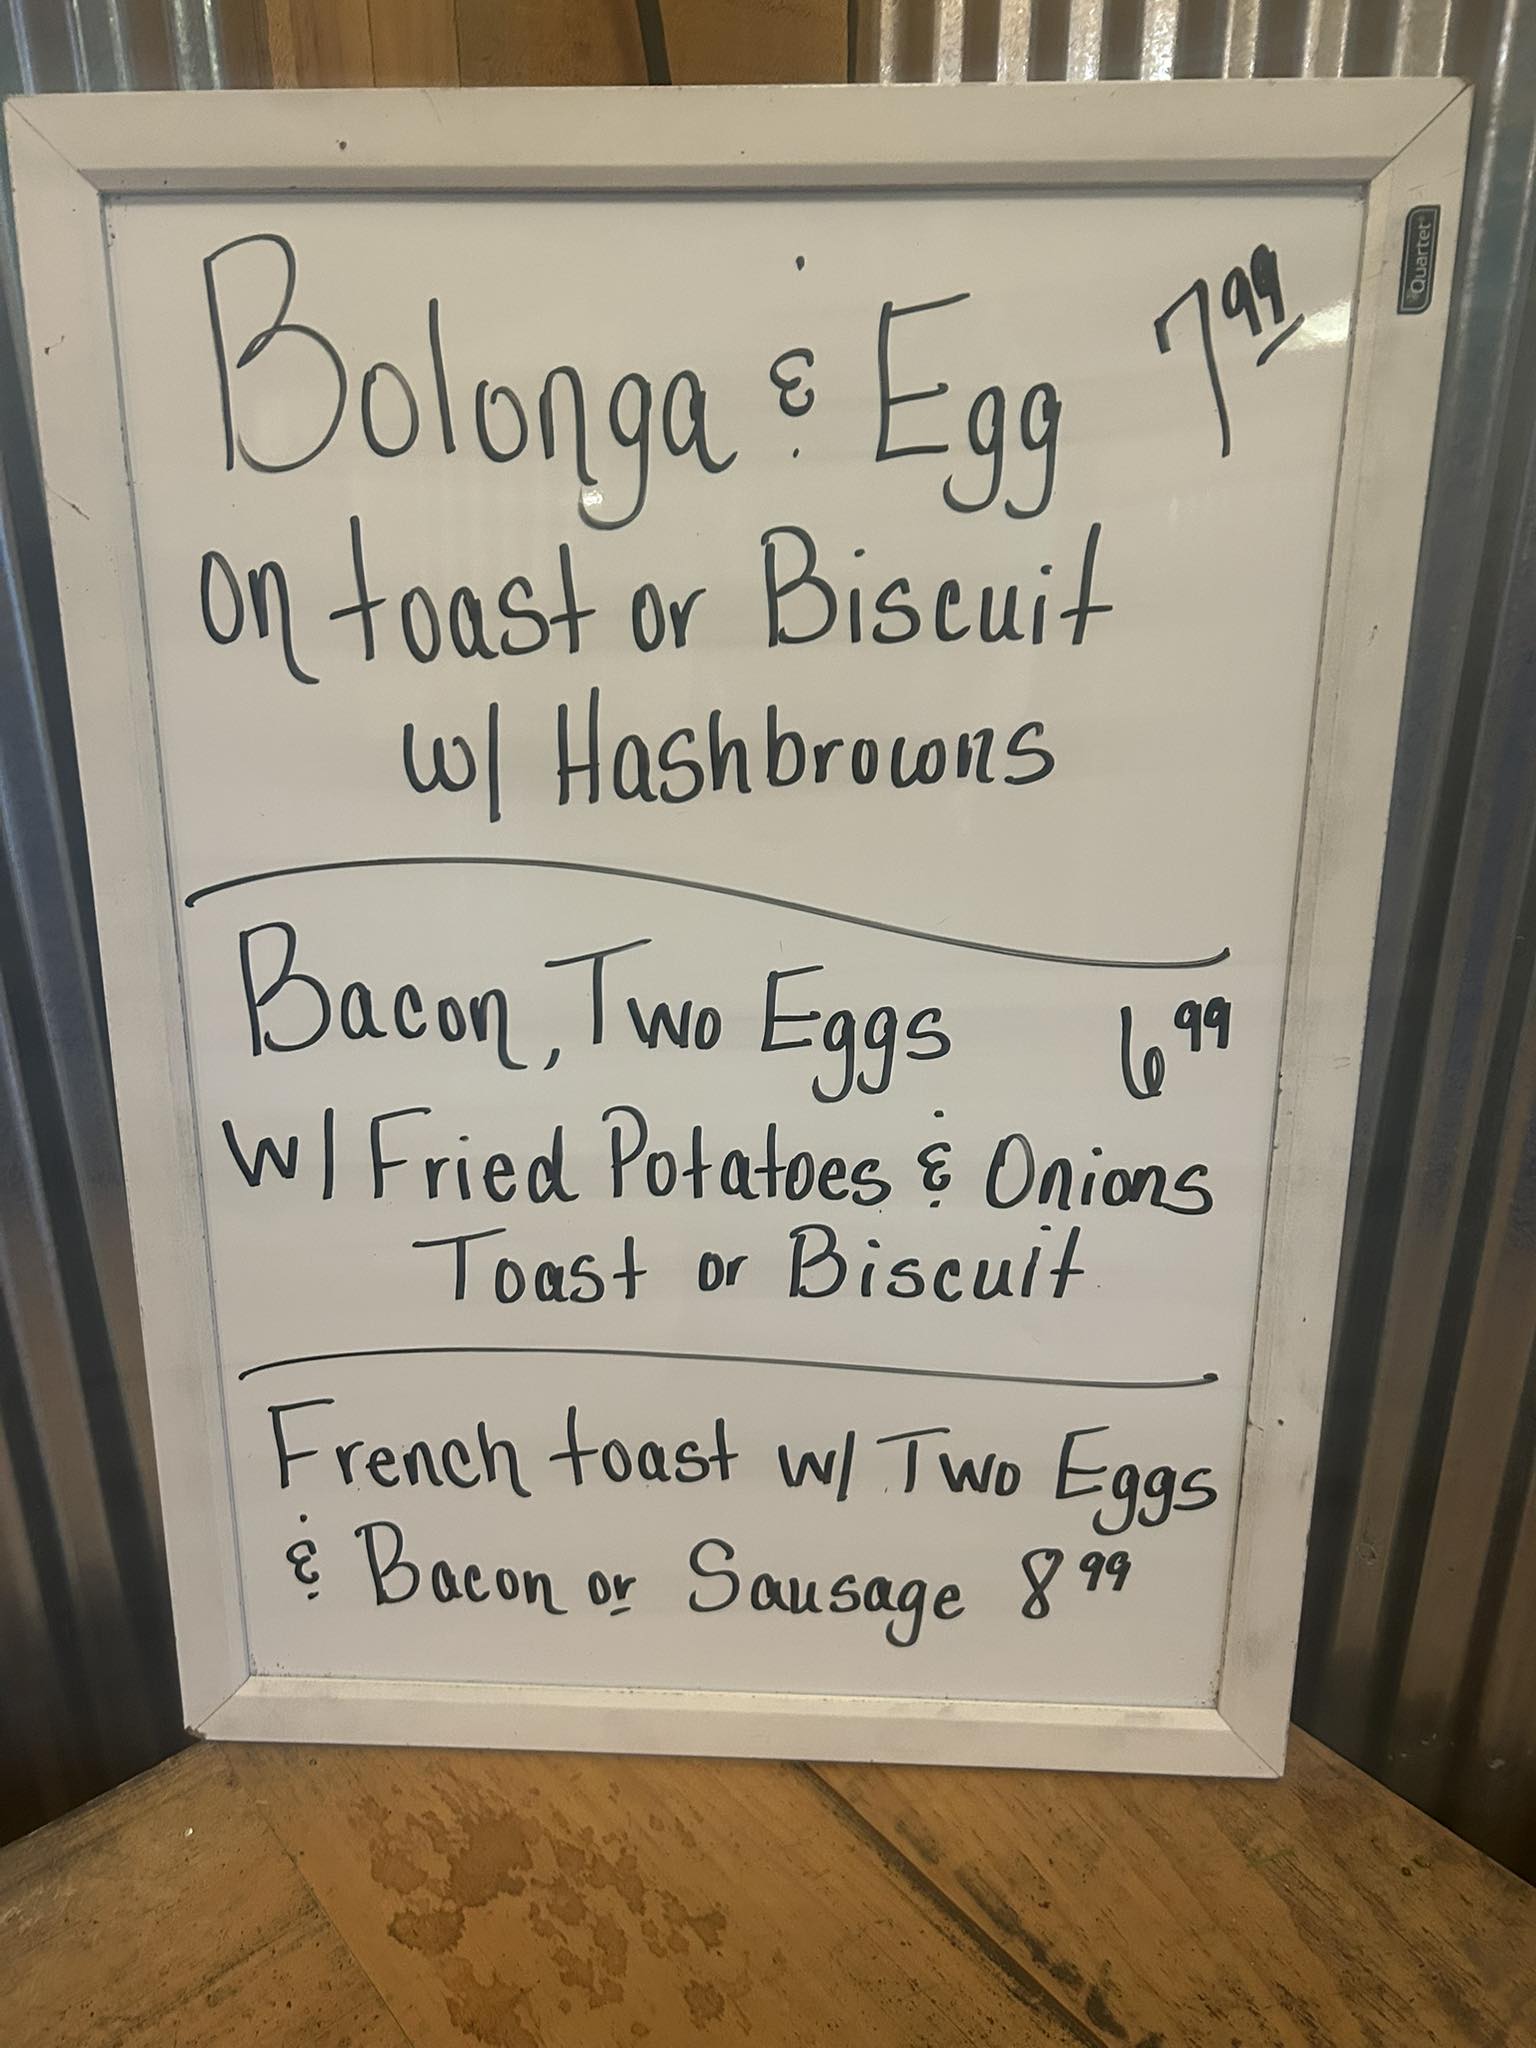 Bolonga & Egg 7.99
on toast or Biscuit
w/ Hashbrowns
Bacon, Two Eggs 6.99
w/ Fried Potatoes & Onions
Toast or Biscuit
French toast w/ Two Eggs
& Bacon or Sausage 8.99
Quartet